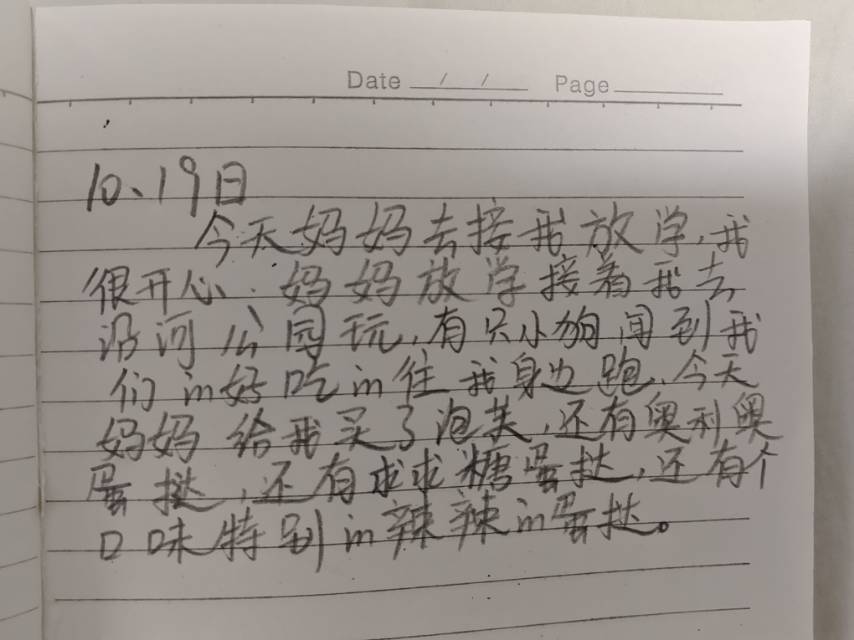 Date / / Page
10、19日
今天妈妈去接我放学,我
很开心.妈妈放学接着我去
沿河公园玩,有只小狗闻到我
们in好吃in往我身边跑.今天
妈妈给我买了泡芙,还有奥利奥
蛋挞,还有求求糖蛋挞,还有个
口味特别in辣辣in蛋挞。